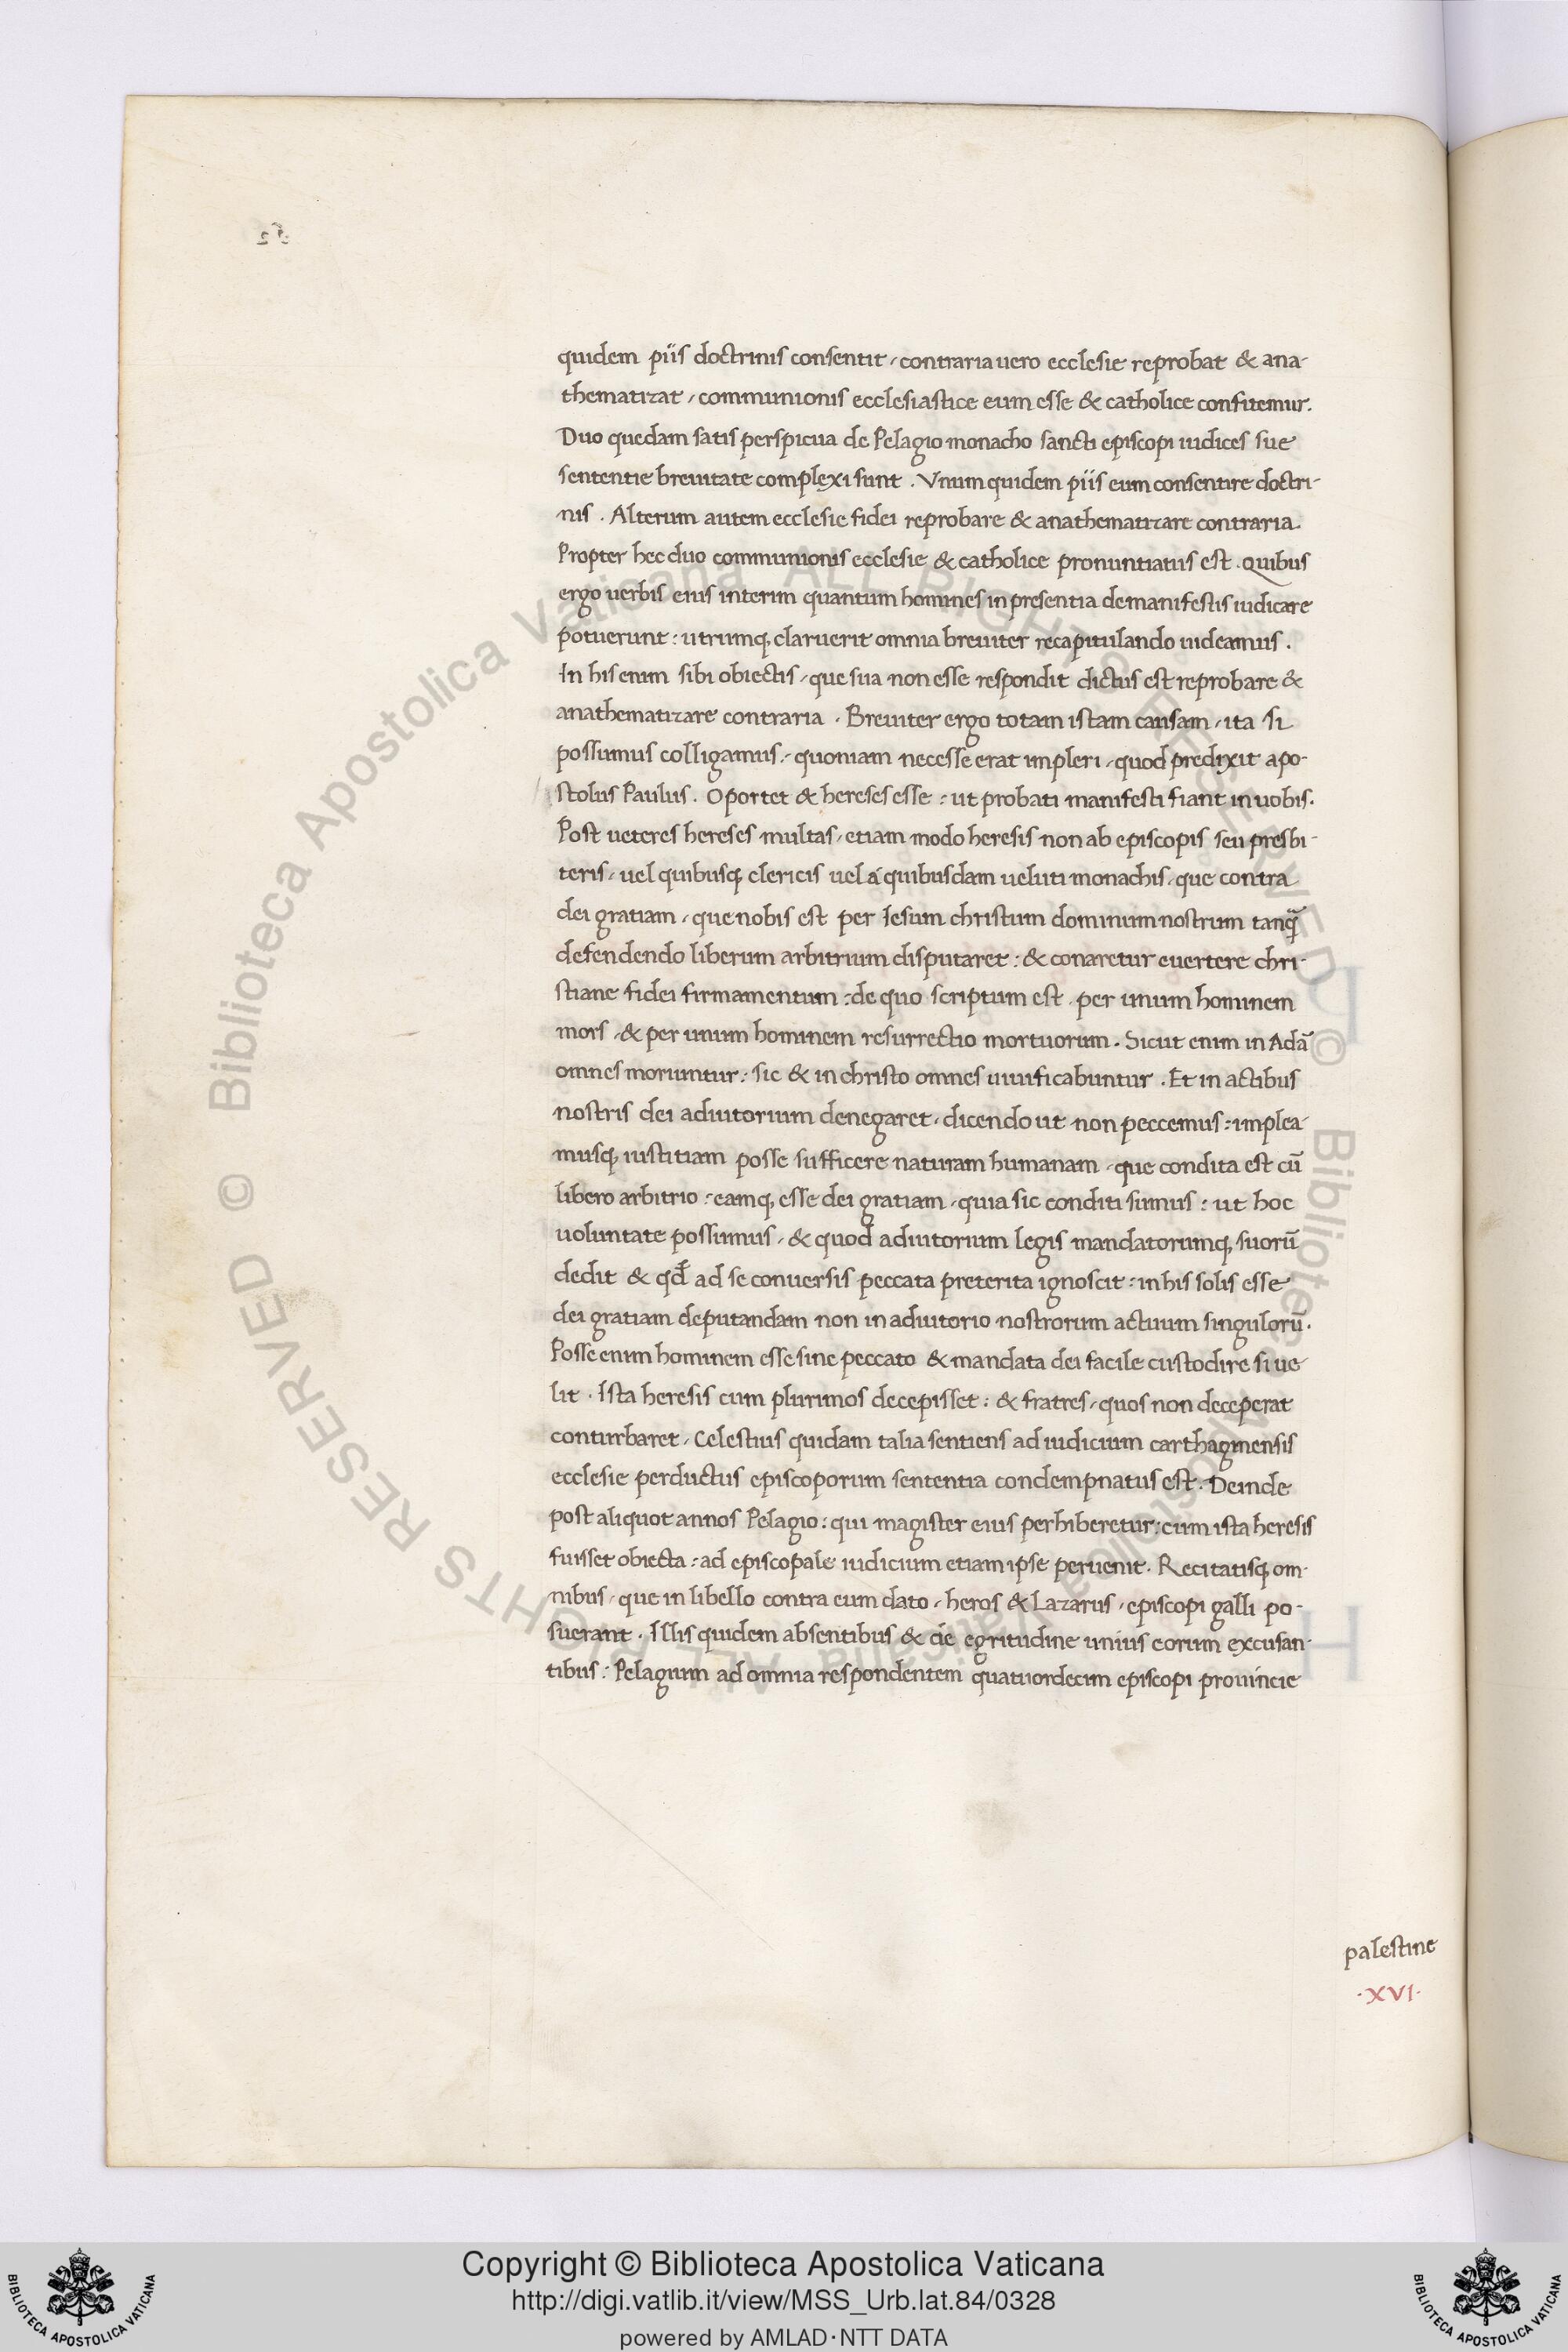 quidem piis doctrinis consentit, contraria uero ecclesie reprobat & ana-
thematizat, communionis ecclesiastice eum esse & catholice confitemur.
Duo quedam satis perspicua de Pelagio monacho sancti episcopi iudices sue
sententie breuitate complexi sunt. Vnum quidem piis eum consentire doctri-
nis. Alterum autem ecclesie fidei reprobare & anathematizare contraria.
Propter hec duo communionis ecclesie & catholice pronuntiatus est. Quibus
ergo uerbis eius interim quantum homines in presentia de manifestis iudicare
potuerunt: utrumq, claruerit omnia breuiter recapitulando uideamus.
In his enim sibi obiectis, que sua non esse respondit dictus est reprobare &
anathematizare contraria. Breuiter ergo totam istam causam, ita si
possumus colligamus, quoniam necesse erat impleri, quod predixit apo-
stolus Paulus. Oportet & hereses esse: ut probati manifesti fiant in uobis.
Post ueteres hereses multas, etiam modo heresis non ab episcopis seu presbi-
teris, uel quibusq, clericis uel á quibusdam ueluti monachis, que contra
dei gratiam, que nobis est per Iesum christum dominum nostrum tanq̃
defendendo liberum arbitrium disputaret: & conaretur euertere chri-
stiane fidei firmamentum: de quo scriptum est. per unum hominem
mors, & per unum hominem resurrectio mortuorum. Sicut enim in Adã
omnes moriuntur: sic & in christo omnes uiuificabuntur. Et in actibus
nostris dei adiutorium denegaret, dicendo ut non peccemus: implea-
musq, iustitiam posse sufficere naturam humanam, que condita est cũ
libero arbitrio: eamq, esse dei gratiam, quia sic conditi sumus: ut hoc
uoluntate possumus, & quod adiutorium legis mandatorumq, suorũ
dedit & qđ ad se conuersis peccata preterita ignoscit: in his solis esse
dei gratiam deputandam non in adiutorio nostrorum actuum singulorũ.
Posse enim hominem esse sine peccato & mandata dei facile custodire si ue
lit. Ista heresis cum plurimos decepisset: & fratres, quos non deceperat
conturbaret, Celestius quidam talia sentiens ad iudicium carthaginensis
ecclesie perductus episcoporum sententia condempnatus est. Deinde
post aliquot annos Pelagio: qui magister eius perhiberetur: cum ista heresis
fuisset obiecta: ad episcopale iudicium etiam ipse peruenit. Recitatisq, om-
nibus, que in libello contra eum dato, heros & Lazarus, episcopi galli po-
suerant. Illis quidem absentibus & de egritudine unius eorum excusan-
tibus: Pelagium ad omnia respondentem quatuordecim episcopi prouincie
palestine
·XVI·
© Biblioteca Apostolica Vaticana ALL RIGHTS RESERVED © Biblioteca Apostolica Vaticana ALL RIGHTS RESERVED
BIBLIOTECA APOSTOLICA VATICANA
Copyright © Biblioteca Apostolica Vaticana
http://digi.vatlib.it/view/MSS_Urb.lat.84/0328
powered by AMLAD·NTT DATA
BIBLIOTECA APOSTOLICA VATICANA